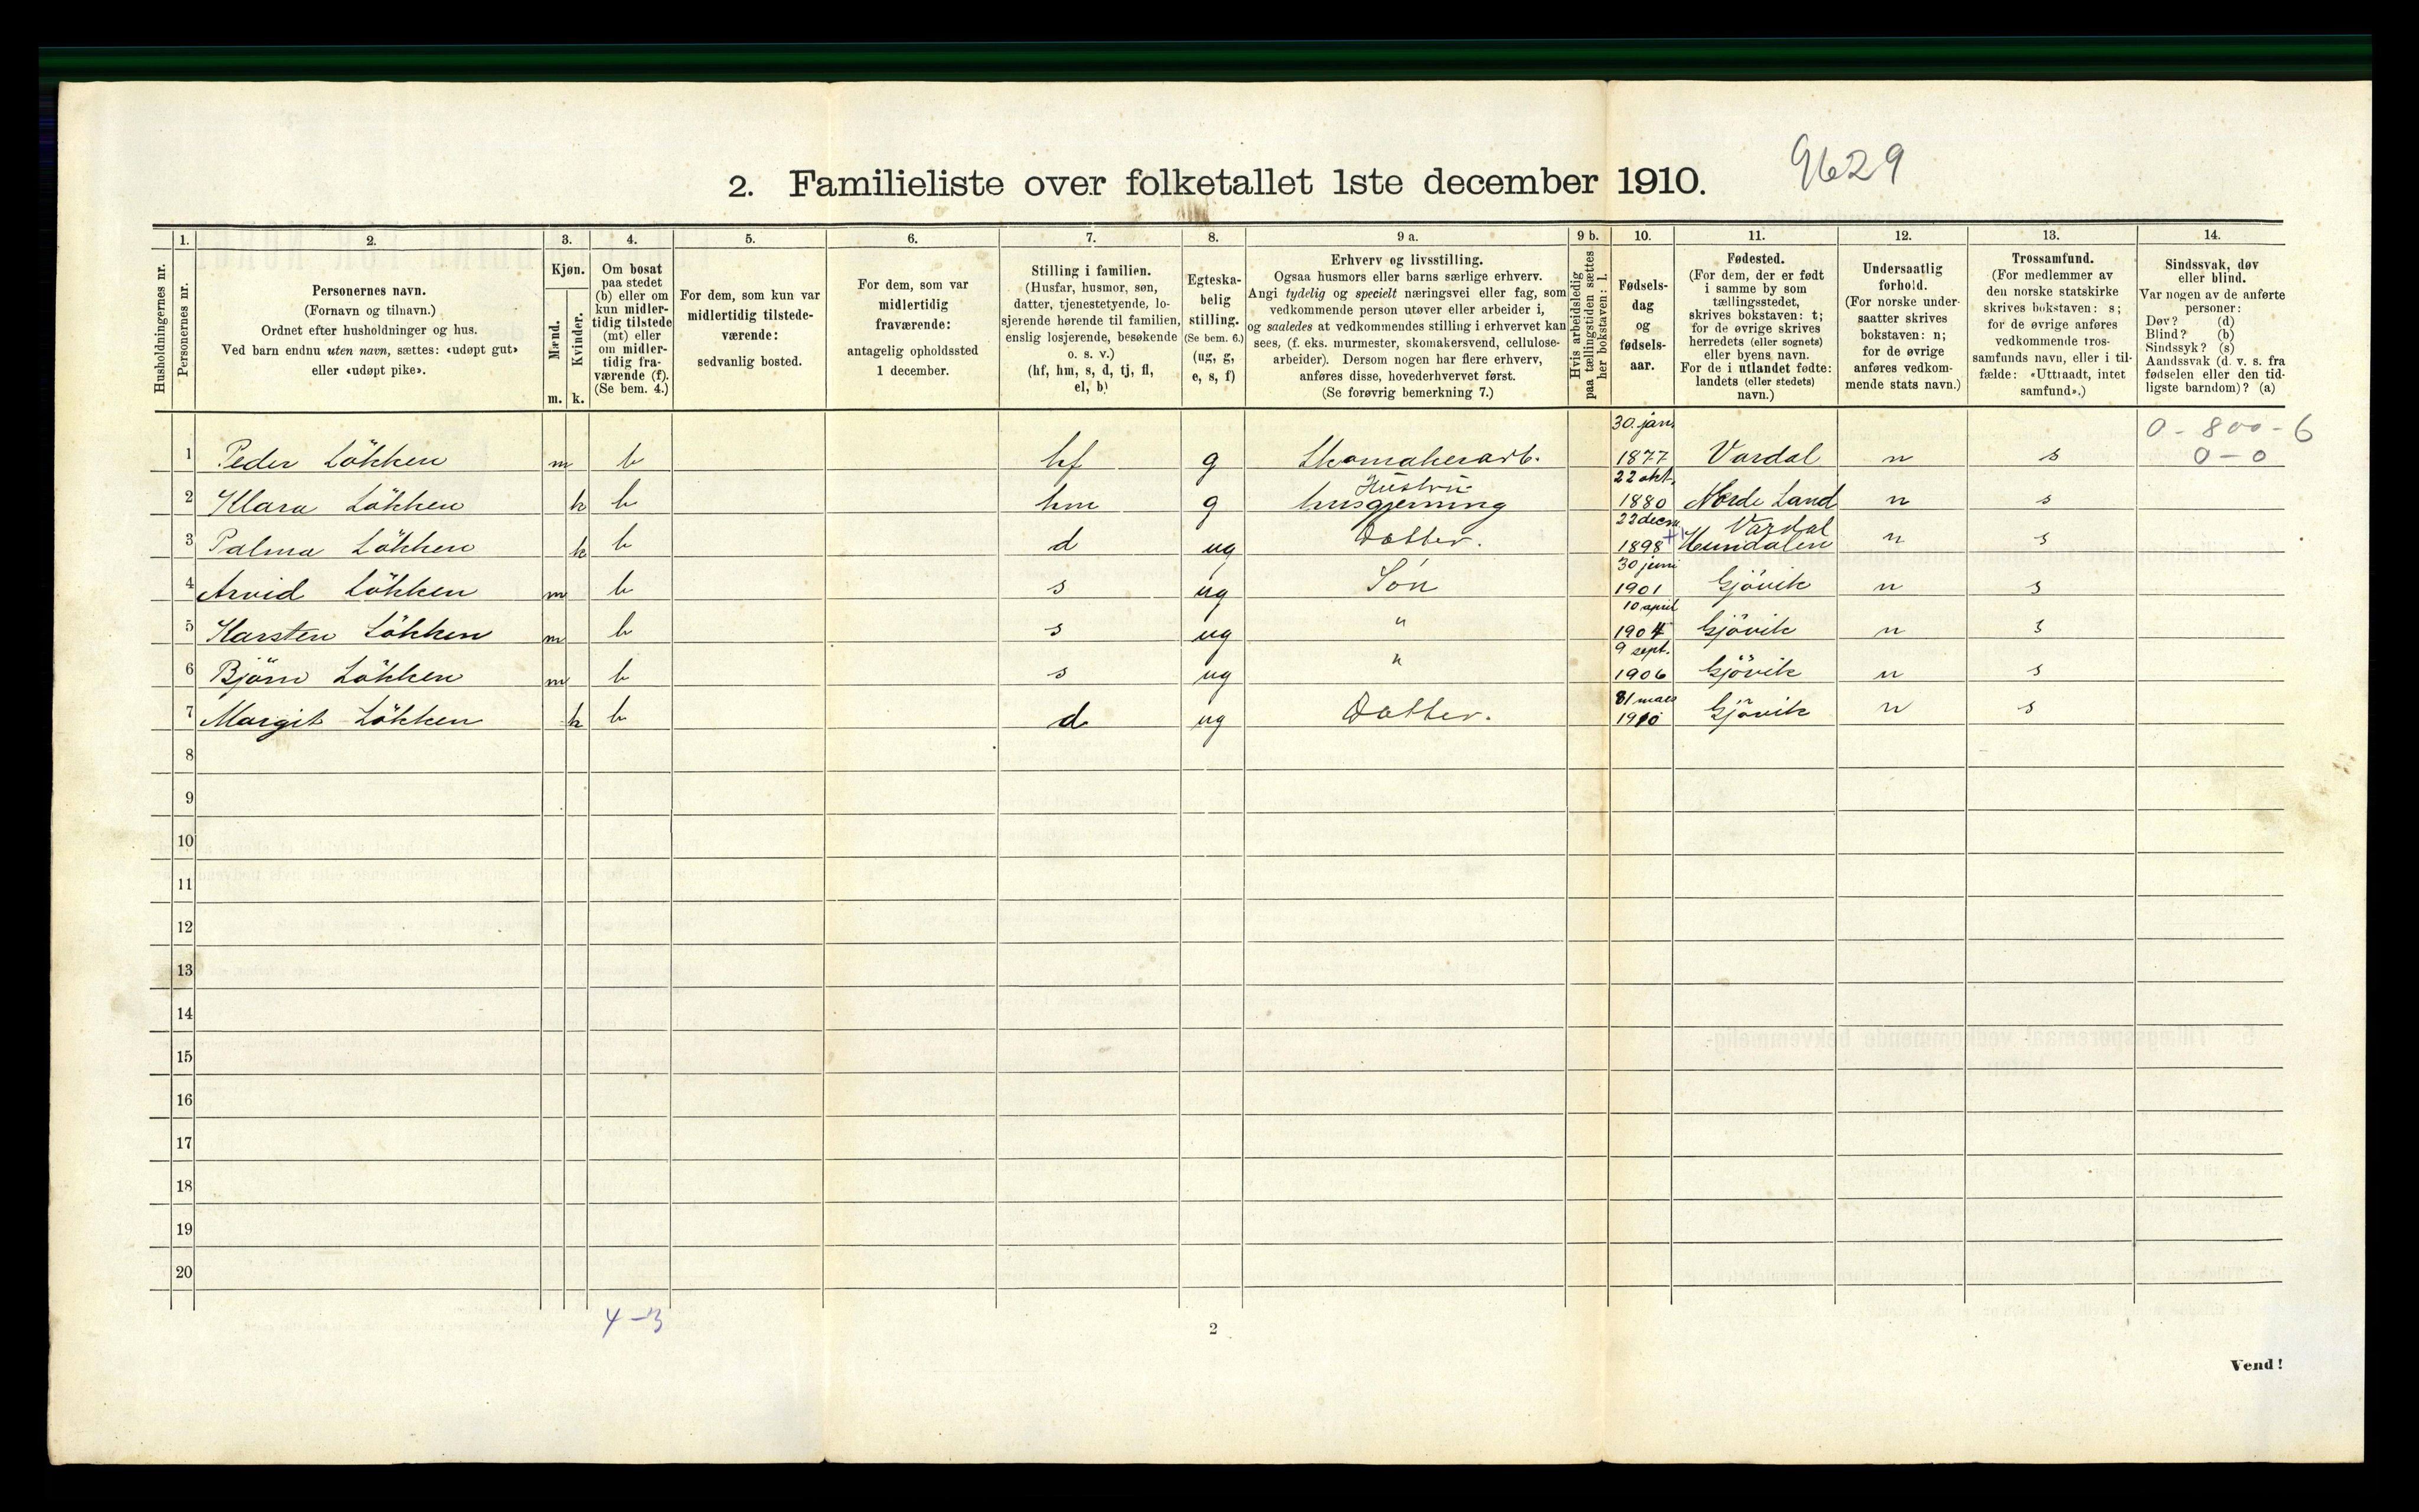 2. Familieliste over folketallet 1ste december 1910.
9629
Husholdningernes nr.
1.
Personernes nr.
2.
Personernes navn.
(Fornavn og tilnavn.)
Ordnet efter husholdninger og hus.
Ved barn endnu uten navn, sættes: «udøpt gut»
eller «udøpt pike».
3.
Kjøn.
Mænd.
Kvinder.
m. k.
4.
Om bosat
paa stedet
(b) eller om
kun midler-
tidig tilstede
(mt) eller
om midler-
tidig fra-
værende (f).
(Se bem. 4.)
5.
For dem, som kun var
midlertidig tilstede-
værende:
sedvanlig bosted.
6.
For dem, som var
midlertidig
fraværende:
antagelig opholdssted
1 december.
7.
Stilling i familien.
(Husfar, husmor, søn,
datter, tjenestetyende, lo-
sjerende hørende til familien,
enslig losjerende, besøkende
o. s. v.)
(hf, hm, s, d, tj, fl,
el, b)
8.
Egteska-
belig
stilling.
(Se bem. 6.)
(ug, g,
e, s, f)
9 a.
Erhverv og livsstilling.
Ogsaa husmors eller barns særlige erhverv.
Angi tydelig og specielt næringsvei eller fag, som
vedkommende person utøver eller arbeider i,
og saaledes at vedkommendes stilling i erhvervet kan
sees, (f. eks. murmester, skomakersvend, cellulose-
arbeider). Dersom nogen har flere erhverv,
anføres disse, hovederhvervet først.
(Se forøvrig bemerkning 7.)
9 b.
Hvis arbeidsledig
paa tællingstiden sættes
her bokstaven: l.
10.
Fødsels-
dag
og
fødsels-
aar.
11.
Fødested.
(For dem, der er født
i samme by som
tællingsstedet,
skrives bokstaven: t;
for de øvrige skrives
herredets (eller sognets)
eller byens navn.
For de i utlandet fødte:
landets (eller stedets)
navn.)
12.
Undersaatlig
forhold.
(For norske under-
saatter skrives
bokstaven: n;
for de øvrige
anføres vedkom-
mende stats navn.)
13.
Trossamfund.
(For medlemmer av
den norske statskirke
skrives bokstaven: s;
for de øvrige anføres
vedkommende tros-
samfunds navn, eller i til-
fælde: «Uttraadt, intet
samfund».)
14.
Sindssvak, døv
eller blind.
Var nogen av de anførte
personer:
Døv? (d)
Blind? (b)
Sindssyk? (s)
Aandssvak (d. v. s. fra
fødselen eller den tid-
ligste barndom)? (a)
0 - 800 - 6
0 - 0
1 Peder Løkken m b hf g Skomakerarb. 30. jan. 1877 Vardal n s
2 Klara Løkken k b hm g Hustru husgjerning 22 okt. 1880 Nordre Land n s
3 Palma Løkken k b d ug Datter. 22 decm 1898 Vardal Hunndalen n s
4 Arvid Løkken m b s ug Søn 30 juni 1901 Gjøvik n s
5 Karsten Løkken m b s ug " 10 april 1904 Gjøvik n s
6 Bjørn Løkken m b s ug " 9 sept. 1906 Gjøvik n s
7 Margit Løkken k b d ug Datter. 31 mars 1910 Gjøvik n s
8
9
10
11
12
13
14
15
16
17
18
19
20
4 - 3
2
Vend!